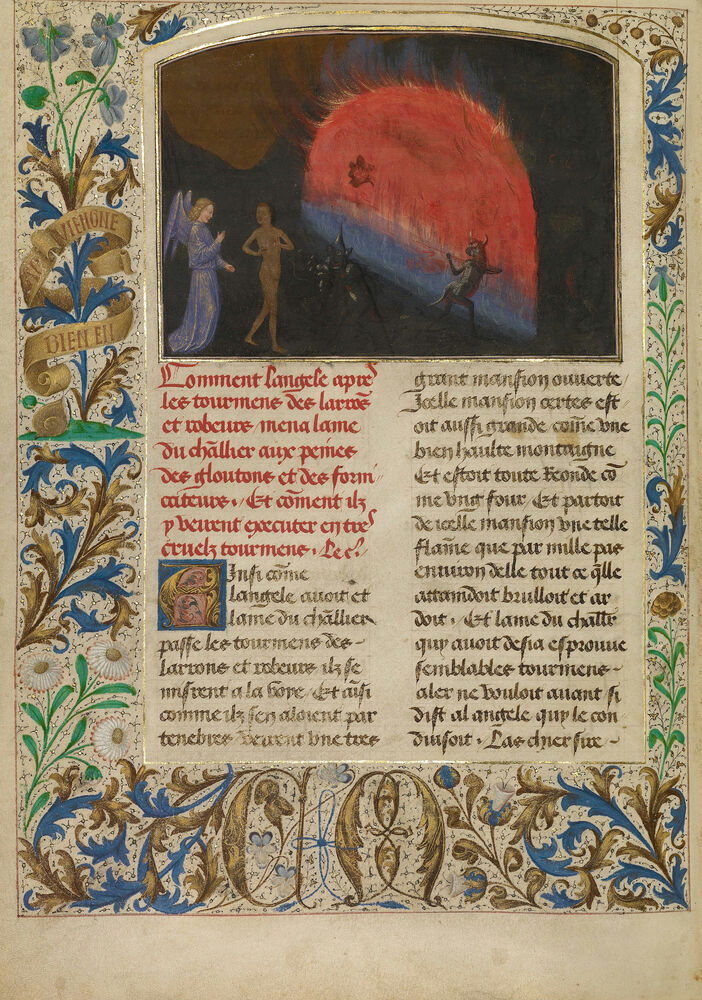 AVIEHGNE
BIEN EN
Comment langele apres
les tourmens des larrons
et robeurs mena lame
du chl̄lier aux peines
des gloutons et des forni
cateurs. Et cōment ilz
y veirent executer en tres
cruelz tourmens. Le c.
Ainsi cōme
langele auoit et
lame du chl̄lier
passe les tourmens des
larrons et robeurs ilz se
misrent a la voye / Et aīsi
comme ilz sen aloient par
tenebres / veirent vne tres
grant mansion ouuerte /
Icelle mansion certes est
oit aussi grande cōme vne
bien haulte montaigne
Et estoit toute Reonde cō
me vng four / Et partoit
de icelle mansion vne telle
flāme que par mille pas
enuiron delle tout ce q̄lle
attaindoit brulloit et ar
doit. Et lame du chl̄lr
quy auoit desia esprouue
semblables tourmens
aler ne vouloit auant si
dist al angele quy le con
duisoit. Las chier sire
C M